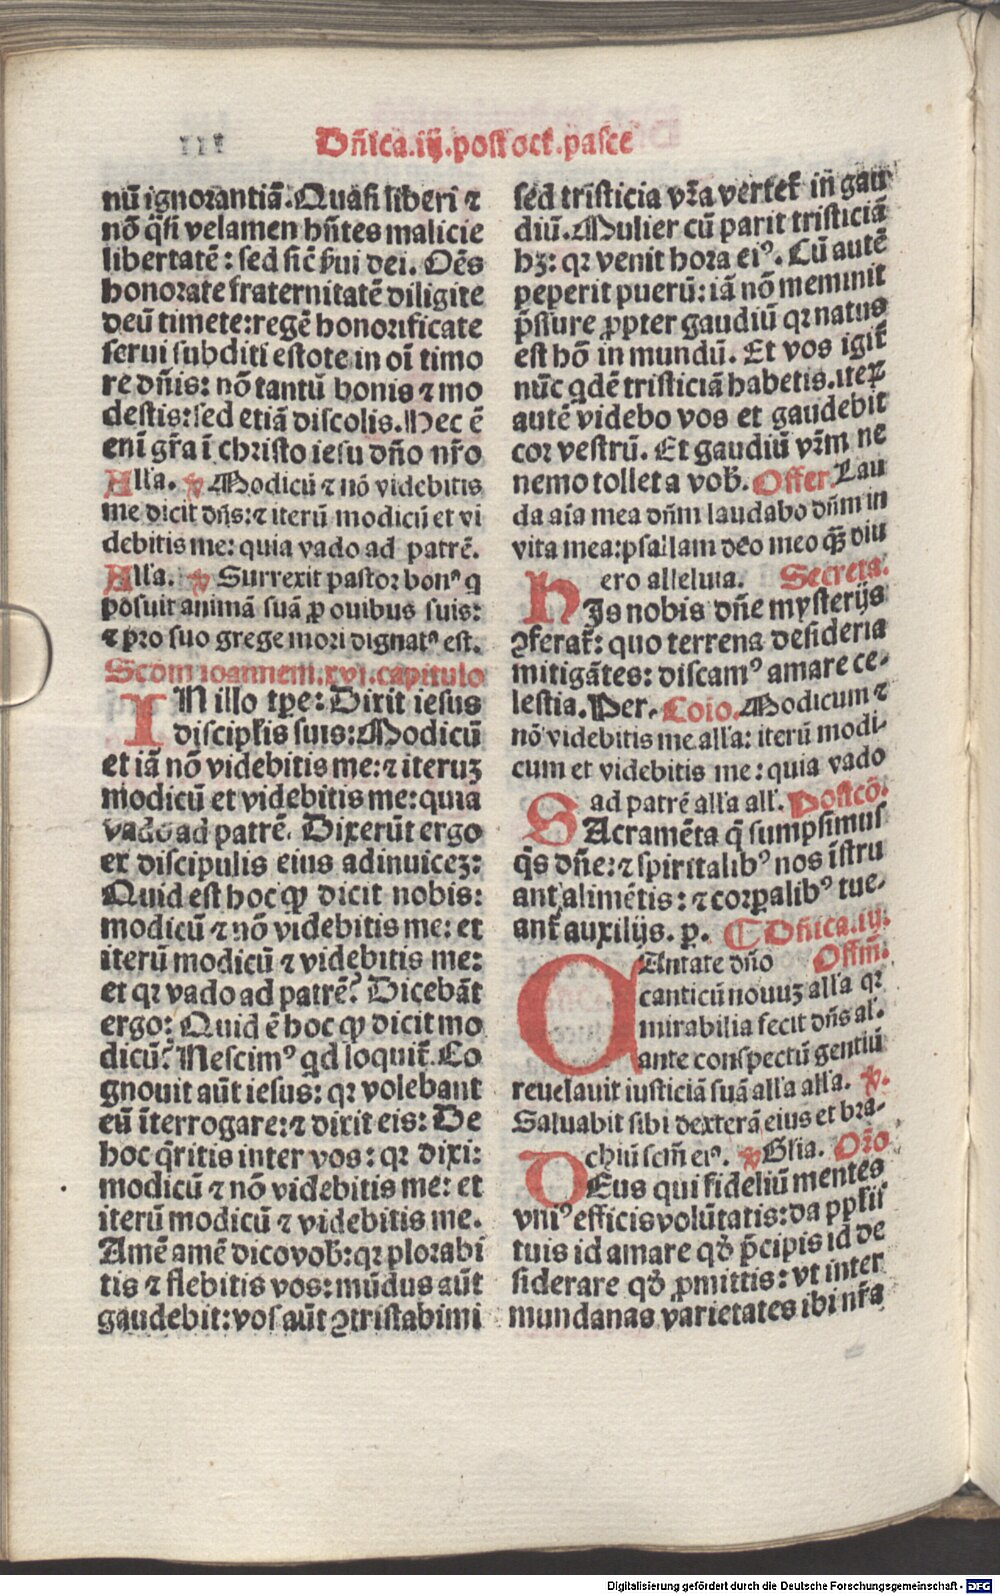 Dñica.iij.post oct̃.pasce
nũ ignorantiã. Quasi liberi ⁊
nõ q̃si velamen hñtes malicie
libertatẽ: sed sic̃ ſ̃ui dei. Oẽs
honorate fraternitatẽ diligite
deũ timete: regẽ honorificate
serui subditi estote in oĩ timo
re dñis: nõ tantũ bonis ⁊ mo
destis: sed etiã discolis. Hec ẽ
enĩ gr̃a ĩ christo iesu dño nr̃o
Alla. ℣ Modicũ ⁊ nõ videbitis
me dicit dñs: ⁊ iterũ modicũ et vi
debitis me: quia vado ad patrẽ.
Alla. ℣ Surrexit pastor bonꝰ q
posuit animã suã ꝓ ouibus suis:
⁊ pro suo grege mori dignatꝰ est.
Scdm ioannem. xvi. capitulo
IN illo tꝑe: Dixit iesus
discipl̃is suis: Modicũ
et iã nõ videbitis me: ⁊ iteruꝫ
modicũ et videbitis me: quia
vado ad patrẽ. Dixerũt ergo
ex discipulis eius adinuiceꝫ:
Quid est hoc ꝙ dicit nobis:
modicũ ⁊ nõ videbitis me: et
iterũ modicũ ⁊ videbitis me:
et qr vado ad patrẽ? Dicebãt
ergo: Quid ẽ hoc ꝙ dicit mo
dicũ? Nescimꝰ qd loquit̃. Co
gnouit aũt iesus: qr volebant
eũ ĩterrogare: ⁊ dixit eis: De
hoc q̃ritis inter vos: qr dixi:
modicũ ⁊ nõ videbitis me: et
iterũ modicũ ⁊ videbitis me.
Amẽ amẽ dico vob̃: qr plorabi
tis ⁊ flebitis vos: mũdus aũt
gaudebit: vos aũt ꝯtristabimi
sed tristicia vr̃a vertet̃ in gau
diũ. Mulier cũ parit tristiciã
hꝫ: qr venit hora eiꝰ. Cũ autẽ
peperit puerũ: iã nõ meminit
p̃ssure ꝓpter gaudiũ qr natus
est hõ in mundũ. Et vos igit̃
nũc qdẽ tristiciã habetis. iteꝝ
autẽ videbo vos et gaudebit
cor vestrũ. Et gaudiũ vr̃m ne
nemo tollet a vob̃. Offer. Lau
da aĩa mea dñm laudabo dñm in
vita mea: psallam deo meo qꝫ diu
ero alleluia. Secreta.
HIs nobis dñe mysterijs
ꝯferat̃: quo terrena desideria
mitigãtes: discamꝰ amare ce-
lestia. Per. Coio. Modicum ⁊
nõ videbitis me alla: iterũ modi-
cum et videbitis me: quia vado
ad patrẽ alla all. Postcõ.
SAcramẽta q̃ sumpsimus
q̃s dñe: ⁊ spiritalibꝰ nos ĩstru
ant alimẽtis: ⁊ corꝑalibꝰ tue-
ant̃ auxilijs. ꝑ. ¶ Dñica.iij.
CAntate dño Offm̃.
canticũ nouuꝫ alla qr
mirabilia fecit dñs al.
ante conspectũ gentiũ
reuelauit iusticiã suã alla alla. ℣.
Saluabit sibi dexterã eius et bra-
chiũ scm̃ eiꝰ. ℣ Glia. Orõ
DEus qui fideliũ mentes
vniꝰ efficis volũtatis: da ppl̃is
tuis id amare qđ p̃cipis id de
siderare qđ ꝓmittis: vt inter
mundanas varietates ibi nr̃a
Digitalisierung gefördert durch die Deutsche Forschungsgemeinschaft - DFG